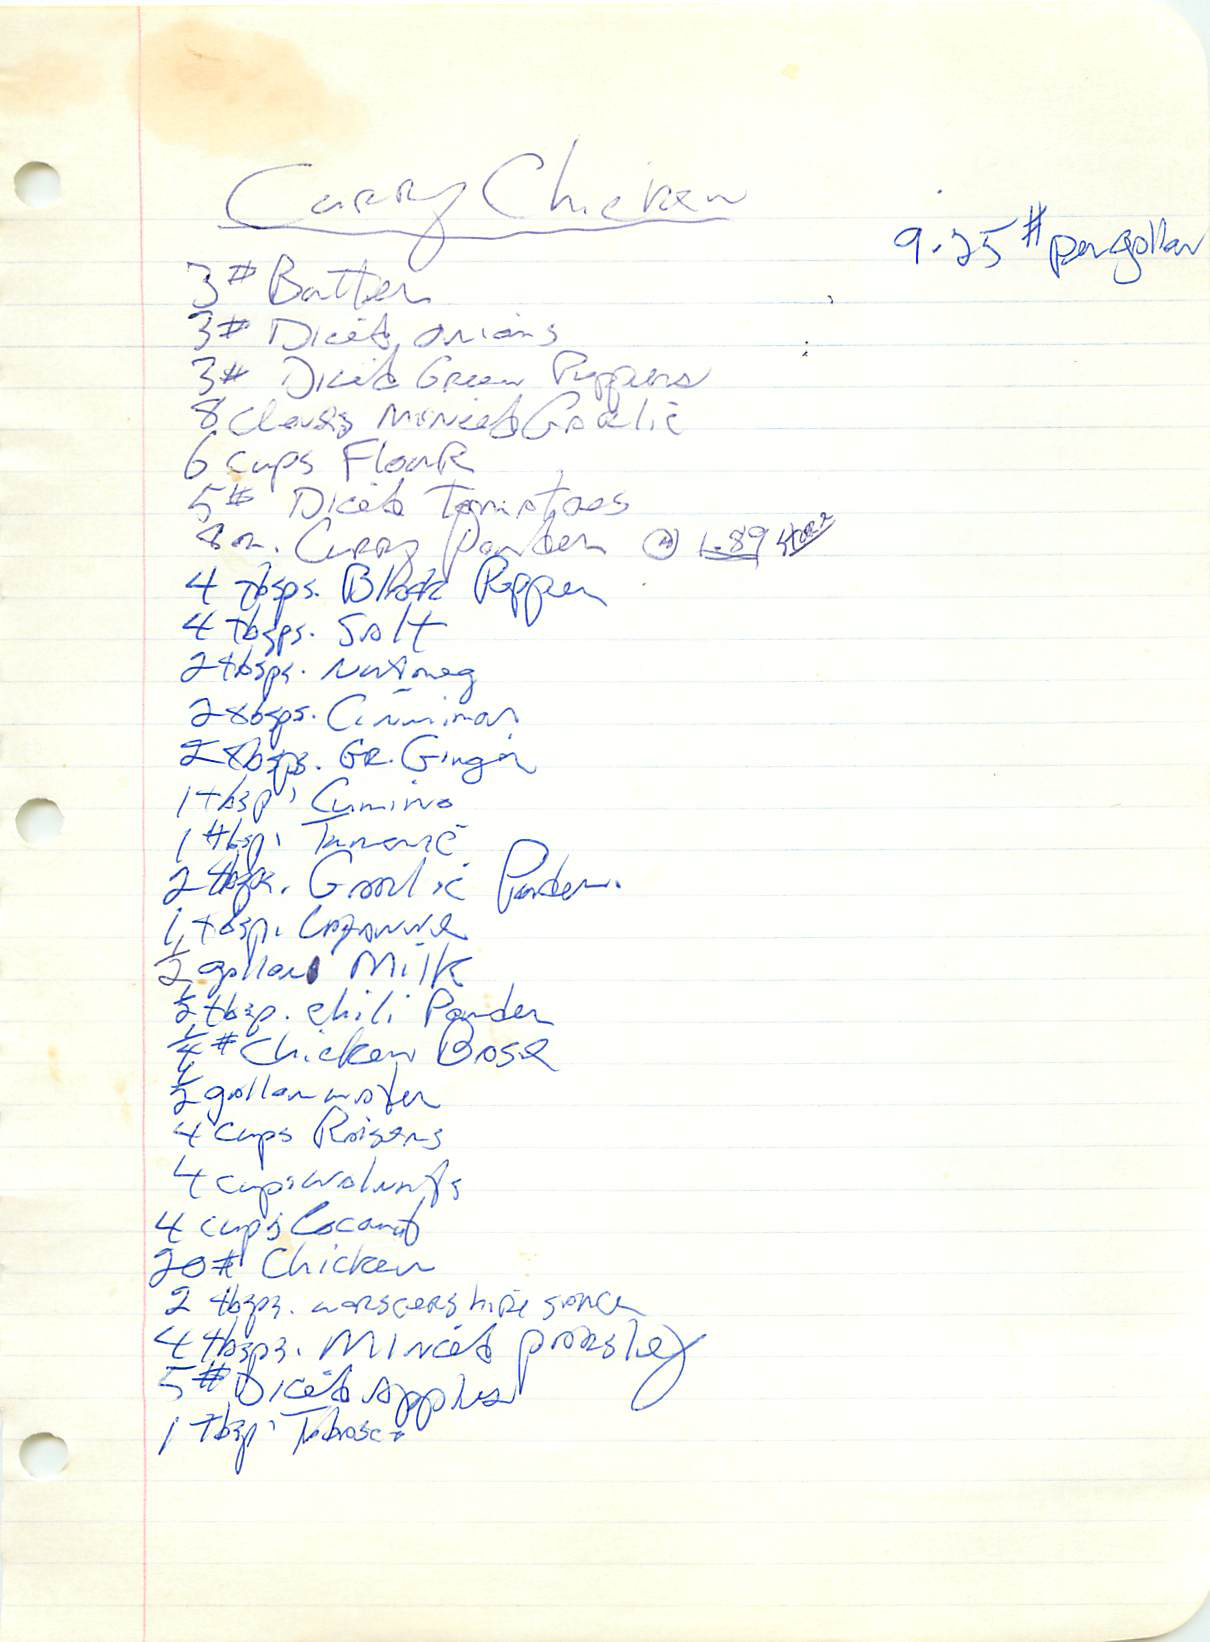 Curry Chicken
9.25 # per gallon
3# Butter
3# Diced onions
3# Diced Green Peppers
8 cloves Minced Garlic
6 cups Flour
5# Diced Tomatoes
8 oz. Curry Powder @ 1.89
4 tbsps. Black Pepper
4 tbsps. Salt
2 tbsps. Nutmeg
2 tbsps. Cinnimon
2 tbsps. Gr. Ginger
1 tbsp. Cumino
1 tbsp. Tumeric
2 tbsps. Garlic Powder.
1 tbsp. Cayanne
1/2 gallon Milk
1/2 tbsp. chili Powder
1/4 # Chicken Base
1/2 gallon water
4 cups Raisens
4 cups walnuts
4 cups Coconut
20# Chicken
2 tbsps. worscershire sauce
4 tbsps. Minced parsley
5# Diced apples
1 tbsp. Tabasco